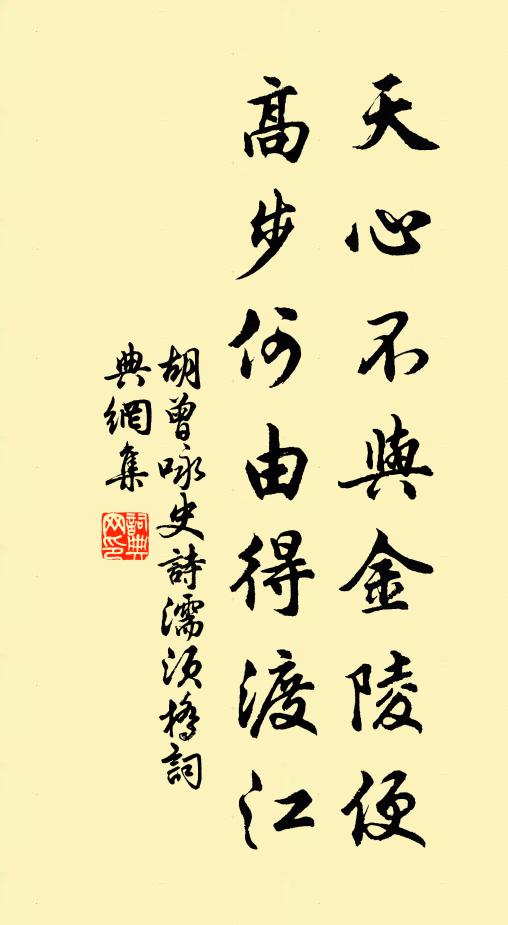 天心不與金陵便
高步何由得渡江
胡曾咏史詩濡須橋詞
典網集
詞典
网印